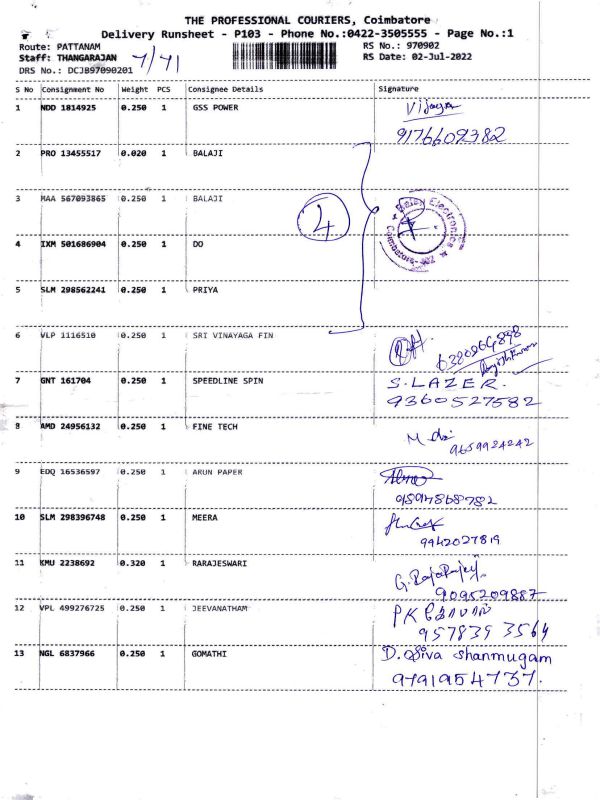 THE PROFESSIONAL COURIERS, Coimbatore
Delivery Runsheet - P103 - Phone No.:0422-3505555 - Page No.:1
Route: PATTANAM RS No.: 970902
Staff: THANGARAJAN 7/41 RS Date: 02-Jul-2022
DRS No.: DCJB97090201
S No Consignment No Weight PCS Consignee Details Signature
1 NDD 1814925 0.250 1 GSS POWER Vijaya
9176609382
2 PRO 13455517 0.020 1 BALAJI
3 MAA 567093865 0.250 1 BALAJI
4
Balaji Electronics
Coimbatore
4 IXM 501686904 0.250 1 DO
5 SLM 298562241 0.250 1 PRIYA
6 VLP 1116510 0.250 1 SRI VINAYAGA FIN
7 GNT 161704 0.250 1 SPEEDLINE SPIN S. LAZER.
9360527582
8 AMD 24956132 0.250 1 FINE TECH
9659924242
9 EDQ 16536597 0.250 1 ARUN PAPER
9894868782
10 SLM 298396748 0.250 1 MEERA
9942027819
11 KMU 2238692 0.320 1 RARAJESWARI G. RajaRajey
9095209887
12 VPL 499276725 0.250 1 JEEVANATHAM PK கோபால்
957839 3564
13 NGL 6837966 0.250 1 GOMATHI D. Siva Shanmugam
9791954737.